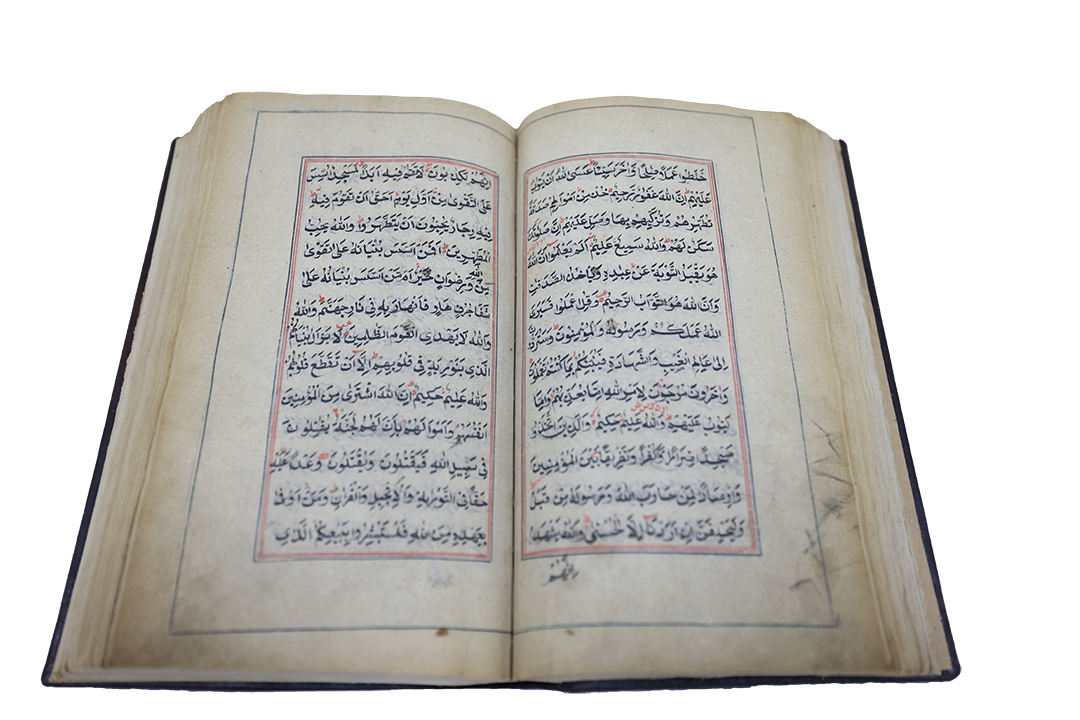 خَلَطُوا عَمَلًا صٰلِحًا وَاٰخَرَ سَيِّئًا عَسَى اللهُ اَنْ يَتُوْبَ
عَلَيْهِمْ اِنَّ اللهَ غَفُوْرٌ رَحِيْمٌ خُذْ مِنْ اَمْوَالِهِمْ صَدَقَةً
تُطَهِّرُهُمْ وَتُزَكِّيْهِمْ بِهَا وَصَلِّ عَلَيْهِمْ اِنَّ صَلٰوتَكَ
سَكَنٌ لَهُمْ وَاللهُ سَمِيْعٌ عَلِيْمٌ اَلَمْ يَعْلَمُوْا اَنَّ اللهَ
هُوَ يَقْبَلُ التَّوْبَةَ عَنْ عِبَادِهٖ وَيَأْخُذُ الصَّدَقٰتِ
وَاَنَّ اللهَ هُوَ التَّوَّابُ الرَّحِيْمُ وَقُلِ اعْمَلُوا فَسَيَرَى
اللهُ عَمَلَكُمْ وَرَسُوْلُهُ وَالْمُؤْمِنُوْنَ وَسَتُرَدُّوْنَ
اِلٰى عَالِمِ الْغَيْبِ وَالشَّهَادَةِ فَيُنَبِّئُكُمْ بِمَا كُنْتُمْ تَعْمَلُوْنَ
وَاٰخَرُوْنَ مُرْجَوْنَ لِاَمْرِ اللهِ اِمَّا يُعَذِّبُهُمْ وَاِمَّا
يَتُوْبُ عَلَيْهِمْ وَاللهُ عَلِيْمٌ حَكِيْمٌ وَالَّذِيْنَ اتَّخَذُوْا
مَسْجِدًا ضِرَارًا وَكُفْرًا وَتَفْرِيْقًا بَيْنَ الْمُؤْمِنِيْنَ
وَاِرْصَادًا لِمَنْ حَارَبَ اللهَ وَرَسُوْلَهُ مِنْ قَبْلُ
وَلَيَحْلِفُنَّ اِنْ اَرَدْنَا اِلَّا الْحُسْنٰى وَاللهُ يَشْهَدُ
اِنَّهُمْ
اِنَّهُمْ لَكٰذِبُوْنَ لَا تَقُمْ فِيْهِ اَبَدًا لَمَسْجِدٌ اُسِّسَ
عَلَى التَّقْوٰى مِنْ اَوَّلِ يَوْمٍ اَحَقُّ اَنْ تَقُوْمَ فِيْهِ
فِيْهِ رِجَالٌ يُحِبُّوْنَ اَنْ يَتَطَهَّرُوْا وَاللهُ يُحِبُّ
الْمُطَّهِّرِيْنَ اَفَمَنْ اَسَّسَ بُنْيَانَهُ عَلَى التَّقْوٰى
مِنَ اللهِ وَرِضْوَانٍ خَيْرٌ اَمْ مَنْ اَسَّسَ بُنْيَانَهُ عَلٰى
شَفَا جُرُفٍ هَارٍ فَانْهَارَ بِهٖ فِى نَارِ جَهَنَّمَ وَاللهُ
وَاللهُ لَا يَهْدِى الْقَوْمَ الظّٰلِمِيْنَ لَا يَزَالُ بُنْيَانُهُمُ
الَّذِى بَنَوْا رِيْبَةً فِى قُلُوْبِهِمْ اِلَّا اَنْ تَقَطَّعَ قُلُوْبُهُمْ
وَاللهُ عَلِيْمٌ حَكِيْمٌ اِنَّ اللهَ اشْتَرٰى مِنَ الْمُؤْمِنِيْنَ
اَنْفُسَهُمْ وَاَمْوَالَهُمْ بِاَنَّ لَهُمُ الْجَنَّةَ يُقَاتِلُوْنَ
فِى سَبِيْلِ اللهِ فَيَقْتُلُوْنَ وَيُقْتَلُوْنَ وَعْدًا عَلَيْهِ
حَقًّا فِى التَّوْرٰيةِ وَالْاِنْجِيْلِ وَالْقُرْاٰنِ وَمَنْ اَوْفٰى
بِعَهْدِهٖ مِنَ اللهِ فَاسْتَبْشِرُوا بِبَيْعِكُمُ الَّذِى